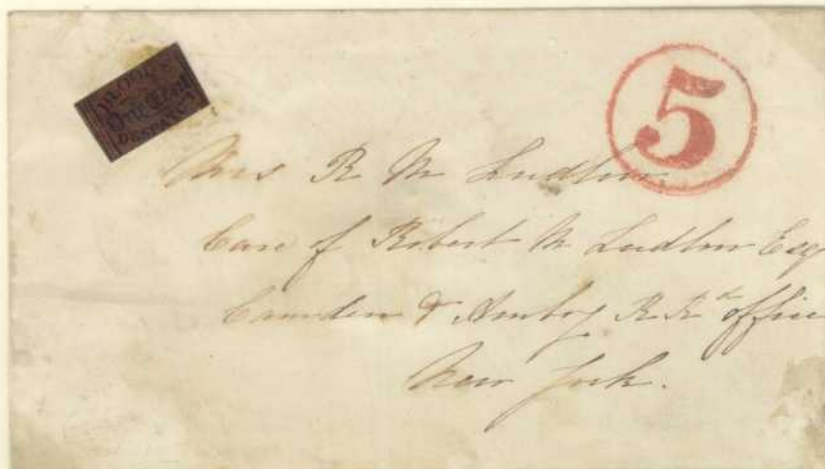 BLOOD'S
One Cent
DESPATCH
5
Mrs R M Ludlow
Care of Robert M Ludlow Esq
Camden & Amboy R. Rd office
New York.